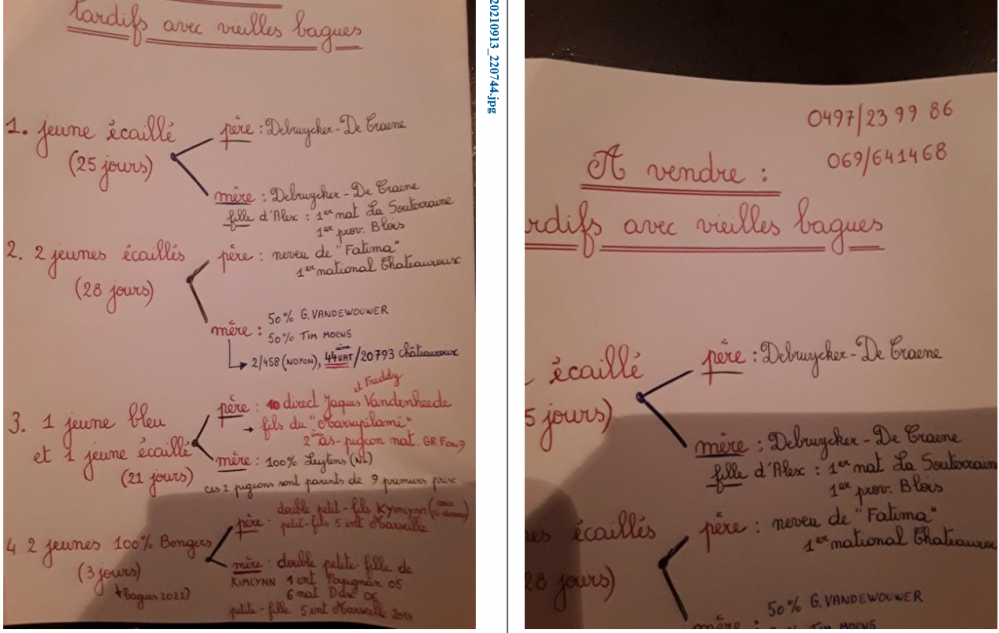 tardifs avec vieilles bagues
1. jeune écaillé
(25 jours)
père : Debruycker - De Craene
mère : Debruycker - De Craene
fille d'Alex : 1er nat La Souterraine
1er prov. Blois
2. 2 jeunes écaillés
(28 jours)
père : neveu de "Fatima"
1er national Chateauroux
mère : 50% G. VANDEWOUWER
50% TIM MOENS
2/458 (NOYON), 44 NAT/20793 Châteauroux
3. 1 jeune bleu
et 1 jeune écaillé
(21 jours)
père : direct Jaques et Freddy Vandenheede
fils du "Marsupilami"
2ème as-pigeon nat. GR FOND
mère : 100% Luytens (NL)
ces 2 pigeons sont parents de 9 premiers prix
4 2 jeunes 100% Bongers
(3 jours)
bagues 2022)
père : double petit-fils KYMLYNN
petit-fils 5 int Marseille
mère : double petite fille de
KIMLYNN 1 int Perpignan 05
6 nat Dax 06
petite-fille 5 int Marseille
20210913_220744.jpg
0497/23 99 86
069/641468
A vendre :
ardifs avec vieilles bagues
écaillé
5 jours)
père : Debruycker - De Craene
mère : Debruycker - De Craene
fille d'Alex : 1er nat La Souterrain
1er prov. Blois
es écaillés
28 jours)
père : neveu de "Fatima"
1er national Chateauroux
50% G. VANDEWOUWER
mère :
TIM MOENS